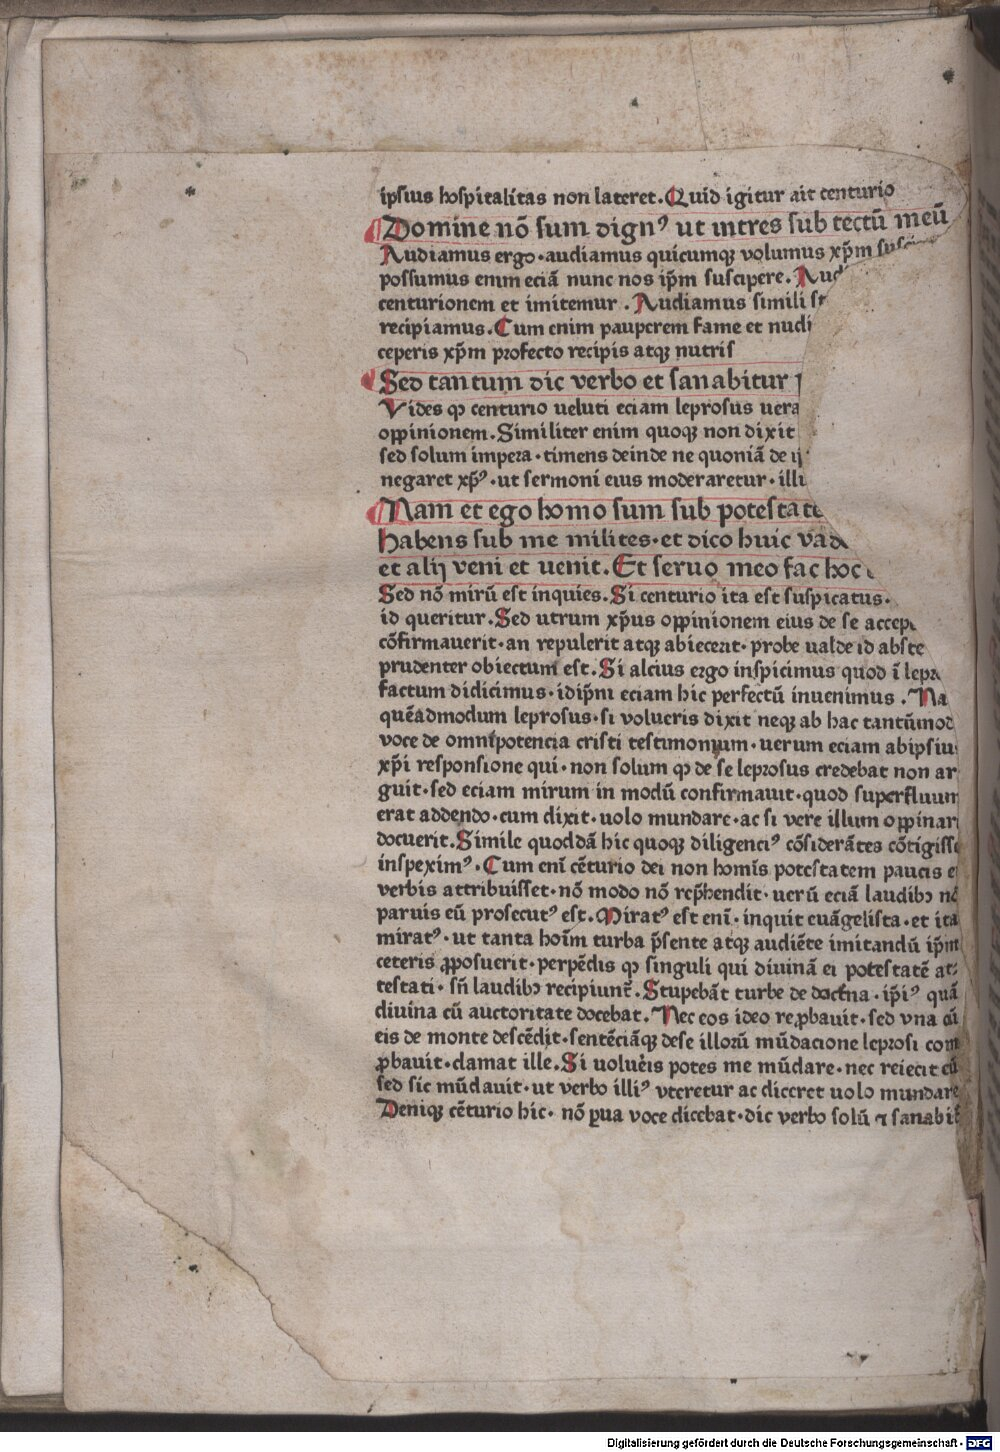 ipsius hospitalitas non lateret. Quid igitur ait centurio
Domine nō sum dignꝰ ut intres sub tectū meū
Audiamus ergo·audiamus quicumqꝫ volumus xp̄m
possumus enim eciā nunc nos ip̄m suscipere.
centurionem et imitemur . Audiamus simili
recipiamus. Cum enim pauperem fame et nudi
ceperis xp̄m profecto recipis atqꝫ nutris
Sed tantum dic verbo et sanabitur
Vides ꝙ centurio veluti eciam leprosus vera
oppinionem. Similiter enim quoqꝫ non dixit
sed solum impera·timens deinde ne quoniā de
negaret xp̄ꝰ·ut sermoni eius moderaretur·
Nam et ego homo sum sub potestate
habens sub me milites·et dico huic
et alij veni et uenit. Et seruo meo fac hoc
Sed nō mirū est inquies. Si centurio ita est suspicatus·
id queritur. Sed utrum xp̄us oppinionem eius de se
cōfirmauerit·an repulerit atqꝫ abiecerit·probe ualde id
prudenter obiectum est. Si alcius ergo inspicimus quod ī
factum didicimus·idip̄m eciam hic perfectū inuenimus .
quēadmodum leprosus·si volueris dixit neqꝫ ab hac
voce de omnipotencia cristi testimonium·uerum eciam
xp̄i responsione qui·non solum ꝙ de se leprosus credebat non ar
guit·sed eciam mirum in modū confirmauit·quod superfluum
erat addendo·cum dixit·uolo mundare·ac si vere illum
docuerit. Simile quoddā hic quoqꝫ diligenciꝰ cōsiderātes
inspeximꝰ. Cum enī cēturio dei non homīs potestatem paucis
verbis attribuisset·nō modo nō rep̄hendit·uerū eciā laudibꝫ
paruis eū prosecutꝰ est. Miratꝰ est enī·inquit euāgelista·et ita
miratꝰ·ut tanta hoīm turba p̄sente atqꝫ audiēte imitandū ip̄m
ceteris ꝓposuerit·perpēdis ꝙ singuli qui diuinā ei potestatē at
testati·sn̄ laudibꝫ recipiunt̄. Stupebāt turbe de doctrina·ip̄iꝰ quā
diuina cū auctoritate docebat. Nec eos ideo reprobauit·sed vna cū
eis de monte descēdit·sentēciāqꝫ dese illorū mūdacione leprosi com
ꝓbauit·clamat ille. Si volueris potes me mūdare·nec reiecit eū
sed sic mūdauit·ut verbo illiꝰ vteretur ac diceret uolo mundare
Deniqꝫ cēturio hic·nō ꝑua voce dicebat·dic verbo solū ⁊ sanabit̄
Digitalisierung gefördert durch die Deutsche Forschungsgemeinschaft · DFG